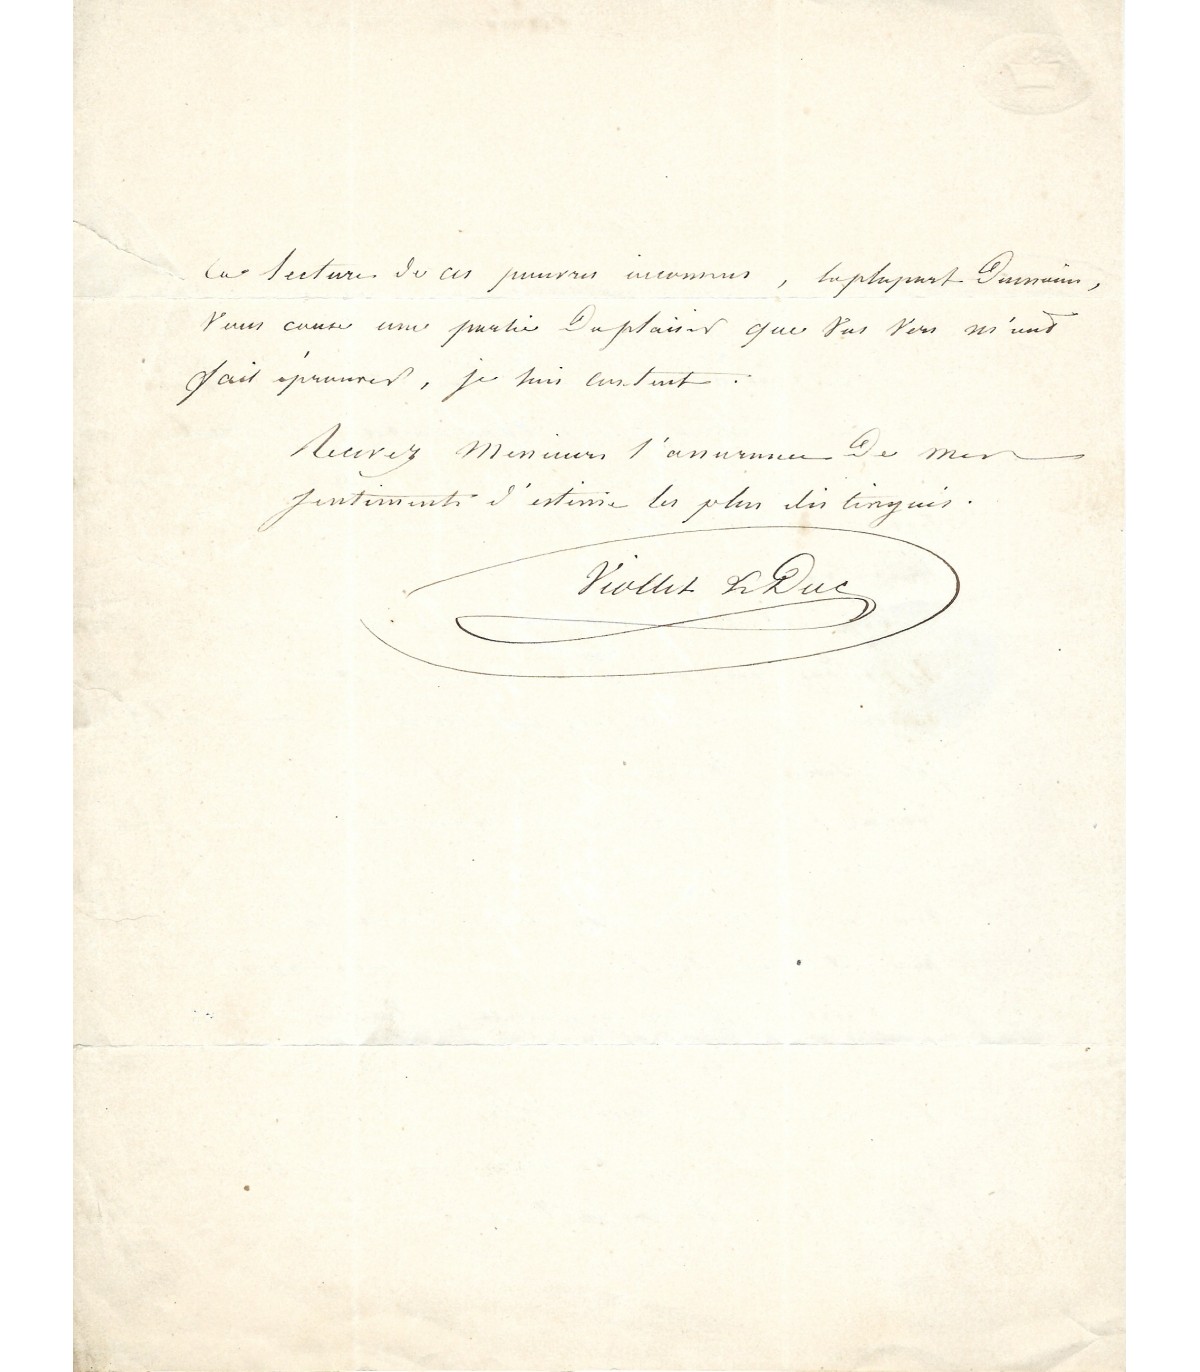 la lecture de ces pauvres inconnus, la plupart
Vous cause une partie du plaisir que vos vers m'ont
fait éprouver, je suis content.
Recevez Messieurs l'assurance De mes
sentiments d'estime les plus distingués.
Viollet Le Duc